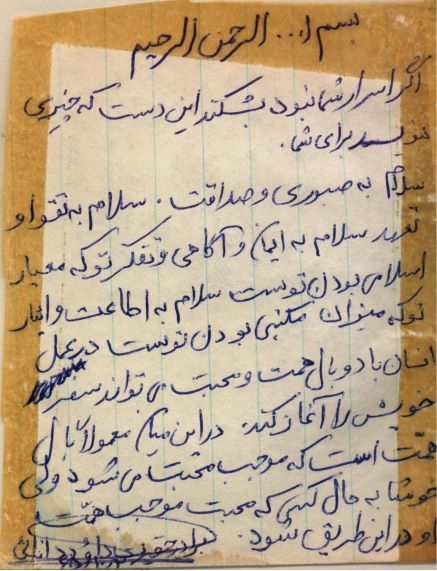 بسم ا... الرحمن الرحیم
اگر اسرار شما نبود بشکند این دست که چیزی
ننویسد برای شما.
سلام به صبوری و صداقت. سلام به تقوا و
تعهد سلام به ایمان و آگاهی و تفکر تو که معیار
اسلامی بودن توست سلام به اطاعت و ایثار
تو که میزان مکتبی بودن توست در عمل
انسان با دو بال همت و محبت می تواند سفر
خویش را آغاز کند. در این میان معمولا بال
همّت است که موجب محبت می شود ولی
خوشا به حال کسی که محبت موجب همّت
او در این طریق شود. برادر حقیری داود دانائی